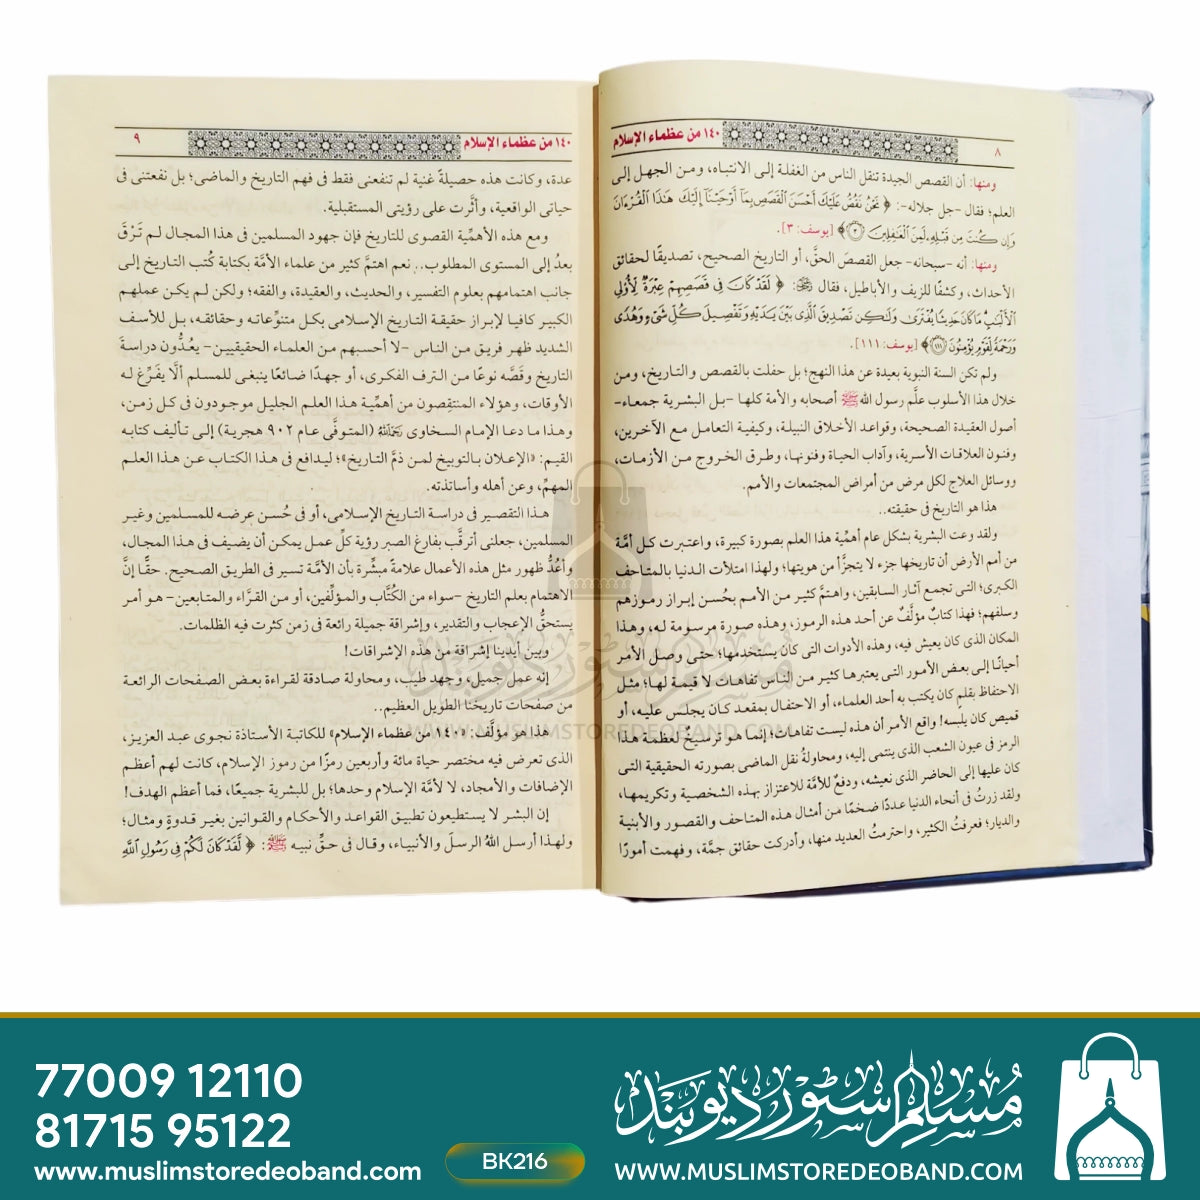 ١٤٠ من عظماء الإسلام
٨
ومنها: أن القصص الجيدة تنقل الناس من الغفلة إلى الانتباه، ومن الجهل إلى
العلم؛ فقال -جل جلاله-: ﴿ نَحْنُ نَقُصُّ عَلَيْكَ أَحْسَنَ الْقَصَصِ بِمَا أَوْحَيْنَا إِلَيْكَ هَذَا الْقُرْءَانَ
وَإِن كُنتَ مِن قَبْلِهِ لَمِنَ الْغَافِلِينَ ﴿٣﴾ [يوسف: ٣].
ومنها: أنه -سبحانه- جعل القصصَ الحقَّ، أو التاريخ الصحيح، تصديقًا لحقائق
الأحداث، وكشفًا للزيف والأباطيل، فقال ﷻ: ﴿ لَقَدْ كَانَ فِي قَصَصِهِمْ عِبْرَةٌ لِّأُوْلِي
الْأَلْبَابِ مَا كَانَ حَدِيثًا يُفْتَرَى وَلَكِن تَصْدِيقَ الَّذِي بَيْنَ يَدَيْهِ وَتَفْصِيلَ كُلِّ شَيْءٍ وَهُدًى
وَرَحْمَةً لِّقَوْمٍ يُؤْمِنُونَ ﴿١١١﴾ [يوسف: ١١١].
ولم تكن السنة النبوية بعيدة عن هذا النهج؛ بل حفلت بالقصص والتاريخ، ومن
خلال هذا الأسلوب علَّم رسول الله ﷺ أصحابه والأمة كلها -بل البشرية جمعاء-
أصول العقيدة الصحيحة، وقواعد الأخلاق النبيلة، وكيفية التعامل مع الآخرين،
وفنون العلاقات الأسرية، وآداب الحياة وفنونها، وطرق الخروج من الأزمات،
ووسائل العلاج لكل مرض من أمراض المجتمعات والأمم.
هذا هو التاريخ في حقيقته..
ولقد وعت البشرية بشكل عام أهمِّية هذا العلم بصورة كبيرة، واعتبرت كل أمَّة
من أمم الأرض أن تاريخها جزء لا يتجزَّأ من هويتها؛ ولهذا امتلأت الدنيا بالمتاحف
الكبرى؛ التى تجمع آثار السابقين، واهتمَّ كثير من الأمم بحُسن إبراز رموزهم
وسلفهم؛ فهذا كتابٌ مؤلَّفٌ عن أحد هذه الرموز، وهذه صورة مرسومة له، وهذا
المكان الذى كان يعيش فيه، وهذه الأدوات التى كان يستخدمها؛ حتى وصل الأمر
أحيانًا إلى بعض الأمور التى يعتبرها كثير من الناس تفاهات لا قيمة لها؛ مثل
الاحتفاظ بقلمٍ كان يكتب به أحد العلماء، أو الاحتفال بمقعد كان يجلس عليه، أو
قميص كان يلبسه! واقع الأمر أن هذه ليست تفاهات؛ إنما هو ترسيخٌ لعظمة هذا
الرمز فى عيون الشعب الذى ينتمى إليه، ومحاولةُ نقل الماضى بصورته الحقيقية التى
كان عليها إلى الحاضر الذى نعيشه، ودفعٌ للأمَّة للاعتزاز بهذه الشخصية وتكريمها،
ولقد زرتُ فى أنحاء الدنيا عددًا ضخمًا من أمثال هذه المتاحف والقصور والأبنية
والديار؛ فعرفتُ الكثير، واحترمتُ العديد منها، وأدركت حقائق جمَّة، وفهمت أمورًا
١٤٠ من عظماء الإسلام
٩
عدة، وكانت هذه حصيلةً غنية لم تنفعنى فقط فى فهم التاريخ والماضى؛ بل نفعتنى فى
حياتى الواقعية، وأثَّرت على رؤيتى المستقبلية.
ومع هذه الأهمِّية القصوى للتاريخ فإن جهود المسلمين فى هذا المجال لم تَرْقَ
بعدُ إلى المستوى المطلوب.. نعم اهتمَّ كثير من علماء الأمَّة بكتابة كُتب التاريخ إلى
جانب اهتمامهم بعلوم التفسير، والحديث، والعقيدة، والفقه؛ ولكن لم يكن عملهم
الكبير كافيا لإبراز حقيقة التاريخ الإسلامى بكل متنوِّعاته وحقائقه، بل للأسف
الشديد ظهر فريق من الناس -لا أحسبهم من العلماء الحقيقيين- يعُدُّون دراسةَ
التاريخ وقصَّه نوعًا من الترف الفكرى، أو جهدًا ضائعًا ينبغى للمسلم ألَّا يفَرِّغ له
الأوقات، وهؤلاء المنتقِصون من أهمِّية هذا العلم الجليل موجودون فى كل زمن،
وهذا ما دعا الإمام السخاوى رحمه الله (المتوفَّى عام ٩٠٢ هجرية) إلى تأليف كتابه
القيم: «الإعلان بالتوبيخ لمن ذمَّ التاريخ»؛ ليدافع فى هذا الكتاب عن هذا العلم
المهمِّ، وعن أهله وأساتذته.
هذا التقصير فى دراسة التاريخ الإسلامى، أو فى حُسن عرضه للمسلمين وغير
المسلمين، جعلنى أترقَّب بفارغ الصبر رؤية كلِّ عمل يمكن أن يضيف فى هذا المجال،
وأعُدُّ ظهور مثل هذه الأعمال علامةً مبشِّرة بأن الأمَّة تسير فى الطريق الصحيح. حقًّا إنَّ
الاهتمام بعلم التاريخ -سواء من الكُتَّاب والمؤلِّفين، أو من القرَّاء والمتابعين- هو أمر
يستحقُّ الإعجاب والتقدير، وإشراقة جميلة رائعة فى زمن كثرت فيه الظلمات.
وبين أيدينا إشراقة من هذه الإشراقات!
إنه عمل جميل، وجهد طيب، ومحاولة صادقة لقراءة بعض الصفحات الرائعة
من صفحات تاريخنا الطويل العظيم..
هذا هو مؤلَّف: «١٤٠ من عظماء الإسلام» للكاتبة الأستاذة نجوى عبد العزيز،
الذى تعرض فيه مختصر حياة مائة وأربعين رمزًا من رموز الإسلام، كانت لهم أعظم
الإضافات والأمجاد، لا لأمَّة الإسلام وحدها؛ بل للبشرية جميعًا، فما أعظم الهدف!
إن البشر لا يستطيعون تطبيق القواعد والأحكام والقوانين بغير قدوةٍ ومثال؛
ولهذا أرسل اللهُ الرسلَ والأنبياء، وقال فى حقِّ نبيه ﷺ: ﴿ لَّقَدْ كَانَ لَكُمْ فِي رَسُولِ اللَّهِ
مسلم سٹور دیوبند
WWW.MUSLIMSTOREDEOBAND.COM
77009 12110
81715 95122
www.muslimstoredeoband.com
BK216
مسلم سٹور دیوبند
WWW.MUSLIMSTOREDEOBAND.COM